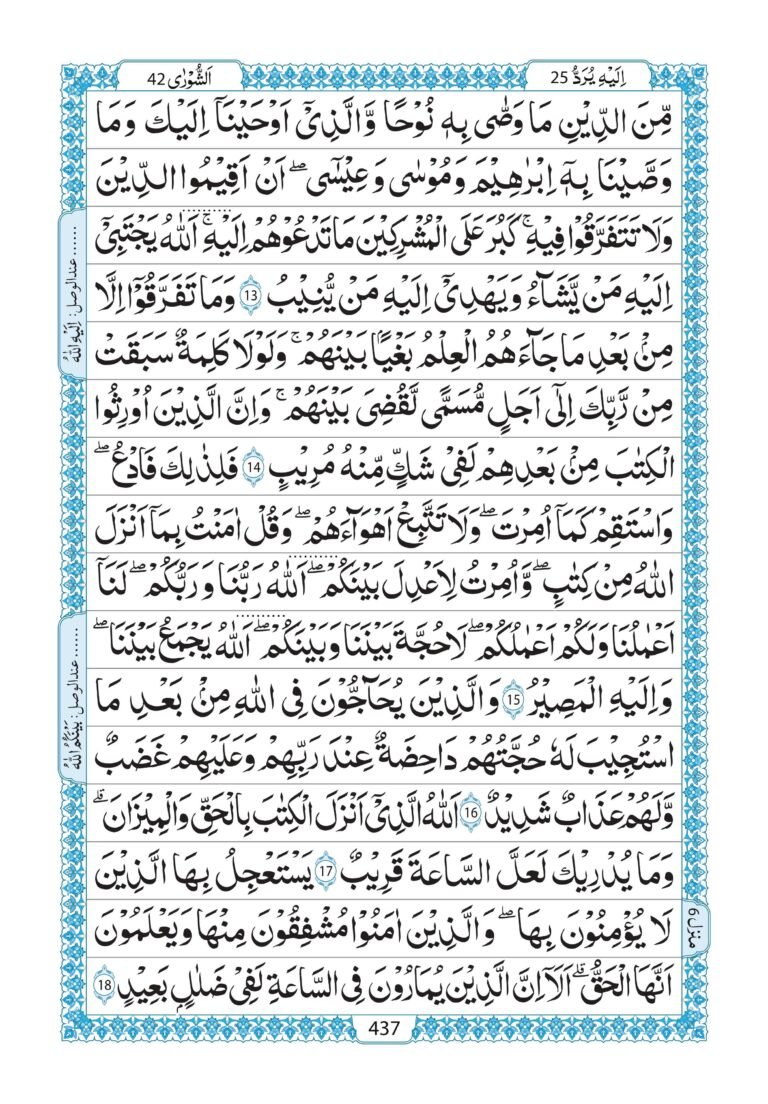 اَلشُّوْرٰى 42
اِلَيْهِ يُرَدُّ 25
مِّنَ الدِّيْنِ مَا وَصّٰى بِهٖ نُوْحًا وَّالَّذِيْٓ اَوْحَيْنَآ اِلَيْكَ وَمَا
وَصَّيْنَا بِهٖٓ اِبْرٰهِيْمَ وَمُوْسٰى وَعِيْسٰٓى ۖ اَنْ اَقِيْمُوا الدِّيْنَ
وَلَا تَتَفَرَّقُوْا فِيْهِ ۚ كَبُرَ عَلَى الْمُشْرِكِيْنَ مَا تَدْعُوْهُمْ اِلَيْهِ ۚ اَللّٰهُ يَجْتَبِيْٓ
اِلَيْهِ مَنْ يَّشَآءُ وَيَهْدِيْٓ اِلَيْهِ مَنْ يُّنِيْبُ 13 وَمَا تَفَرَّقُوْٓا اِلَّا
مِنْۢ بَعْدِ مَا جَآءَهُمُ الْعِلْمُ بَغْيًاۢ بَيْنَهُمْ ۚ وَلَوْلَا كَلِمَةٌ سَبَقَتْ
مِنْ رَّبِّكَ اِلٰٓى اَجَلٍ مُّسَمًّى لَّقُضِيَ بَيْنَهُمْ ۚ وَاِنَّ الَّذِيْنَ اُوْرِثُوا
الْكِتٰبَ مِنْۢ بَعْدِهِمْ لَفِيْ شَكٍّ مِّنْهُ مُرِيْبٍ 14 فَلِذٰلِكَ فَادْعُ ۖ
وَاسْتَقِمْ كَمَآ اُمِرْتَ ۖ وَلَا تَتَّبِعْ اَهْوَآءَهُمْ ۖ وَقُلْ اٰمَنْتُ بِمَآ اَنْزَلَ
اللّٰهُ مِنْ كِتٰبٍ ۖ وَّاُمِرْتُ لِاَعْدِلَ بَيْنَكُمْ ۖ اَللّٰهُ رَبُّنَا وَرَبُّكُمْ ۖ لَنَآ
اَعْمٰلُنَا وَلَكُمْ اَعْمٰلُكُمْ ۖ لَا حُجَّةَ بَيْنَنَا وَبَيْنَكُمْ ۖ اَللّٰهُ يَجْمَعُ بَيْنَنَا ۖ
وَاِلَيْهِ الْمَصِيْرُ 15 وَالَّذِيْنَ يُحَآجُّوْنَ فِي اللّٰهِ مِنْۢ بَعْدِ مَا
اسْتُجِيْبَ لَهٗ حُجَّتُهُمْ دَاحِضَةٌ عِنْدَ رَبِّهِمْ وَعَلَيْهِمْ غَضَبٌ
وَّلَهُمْ عَذَابٌ شَدِيْدٌ 16 اَللّٰهُ الَّذِيْٓ اَنْزَلَ الْكِتٰبَ بِالْحَقِّ وَالْمِيْزَانَ ۗ
وَمَا يُدْرِيْكَ لَعَلَّ السَّاعَةَ قَرِيْبٌ 17 يَسْتَعْجِلُ بِهَا الَّذِيْنَ
لَا يُؤْمِنُوْنَ بِهَا ۖ وَالَّذِيْنَ اٰمَنُوْا مُشْفِقُوْنَ مِنْهَا وَيَعْلَمُوْنَ
اَنَّهَا الْحَقُّ ۗ اَلَآ اِنَّ الَّذِيْنَ يُمَارُوْنَ فِي السَّاعَةِ لَفِيْ ضَلٰلٍۭ بَعِيْدٍ 18
عند الوصل: اِلَيْهِ اللّٰهُ
عند الوصل: بَيْنَكُمُ اللّٰهُ
منزل 6
437